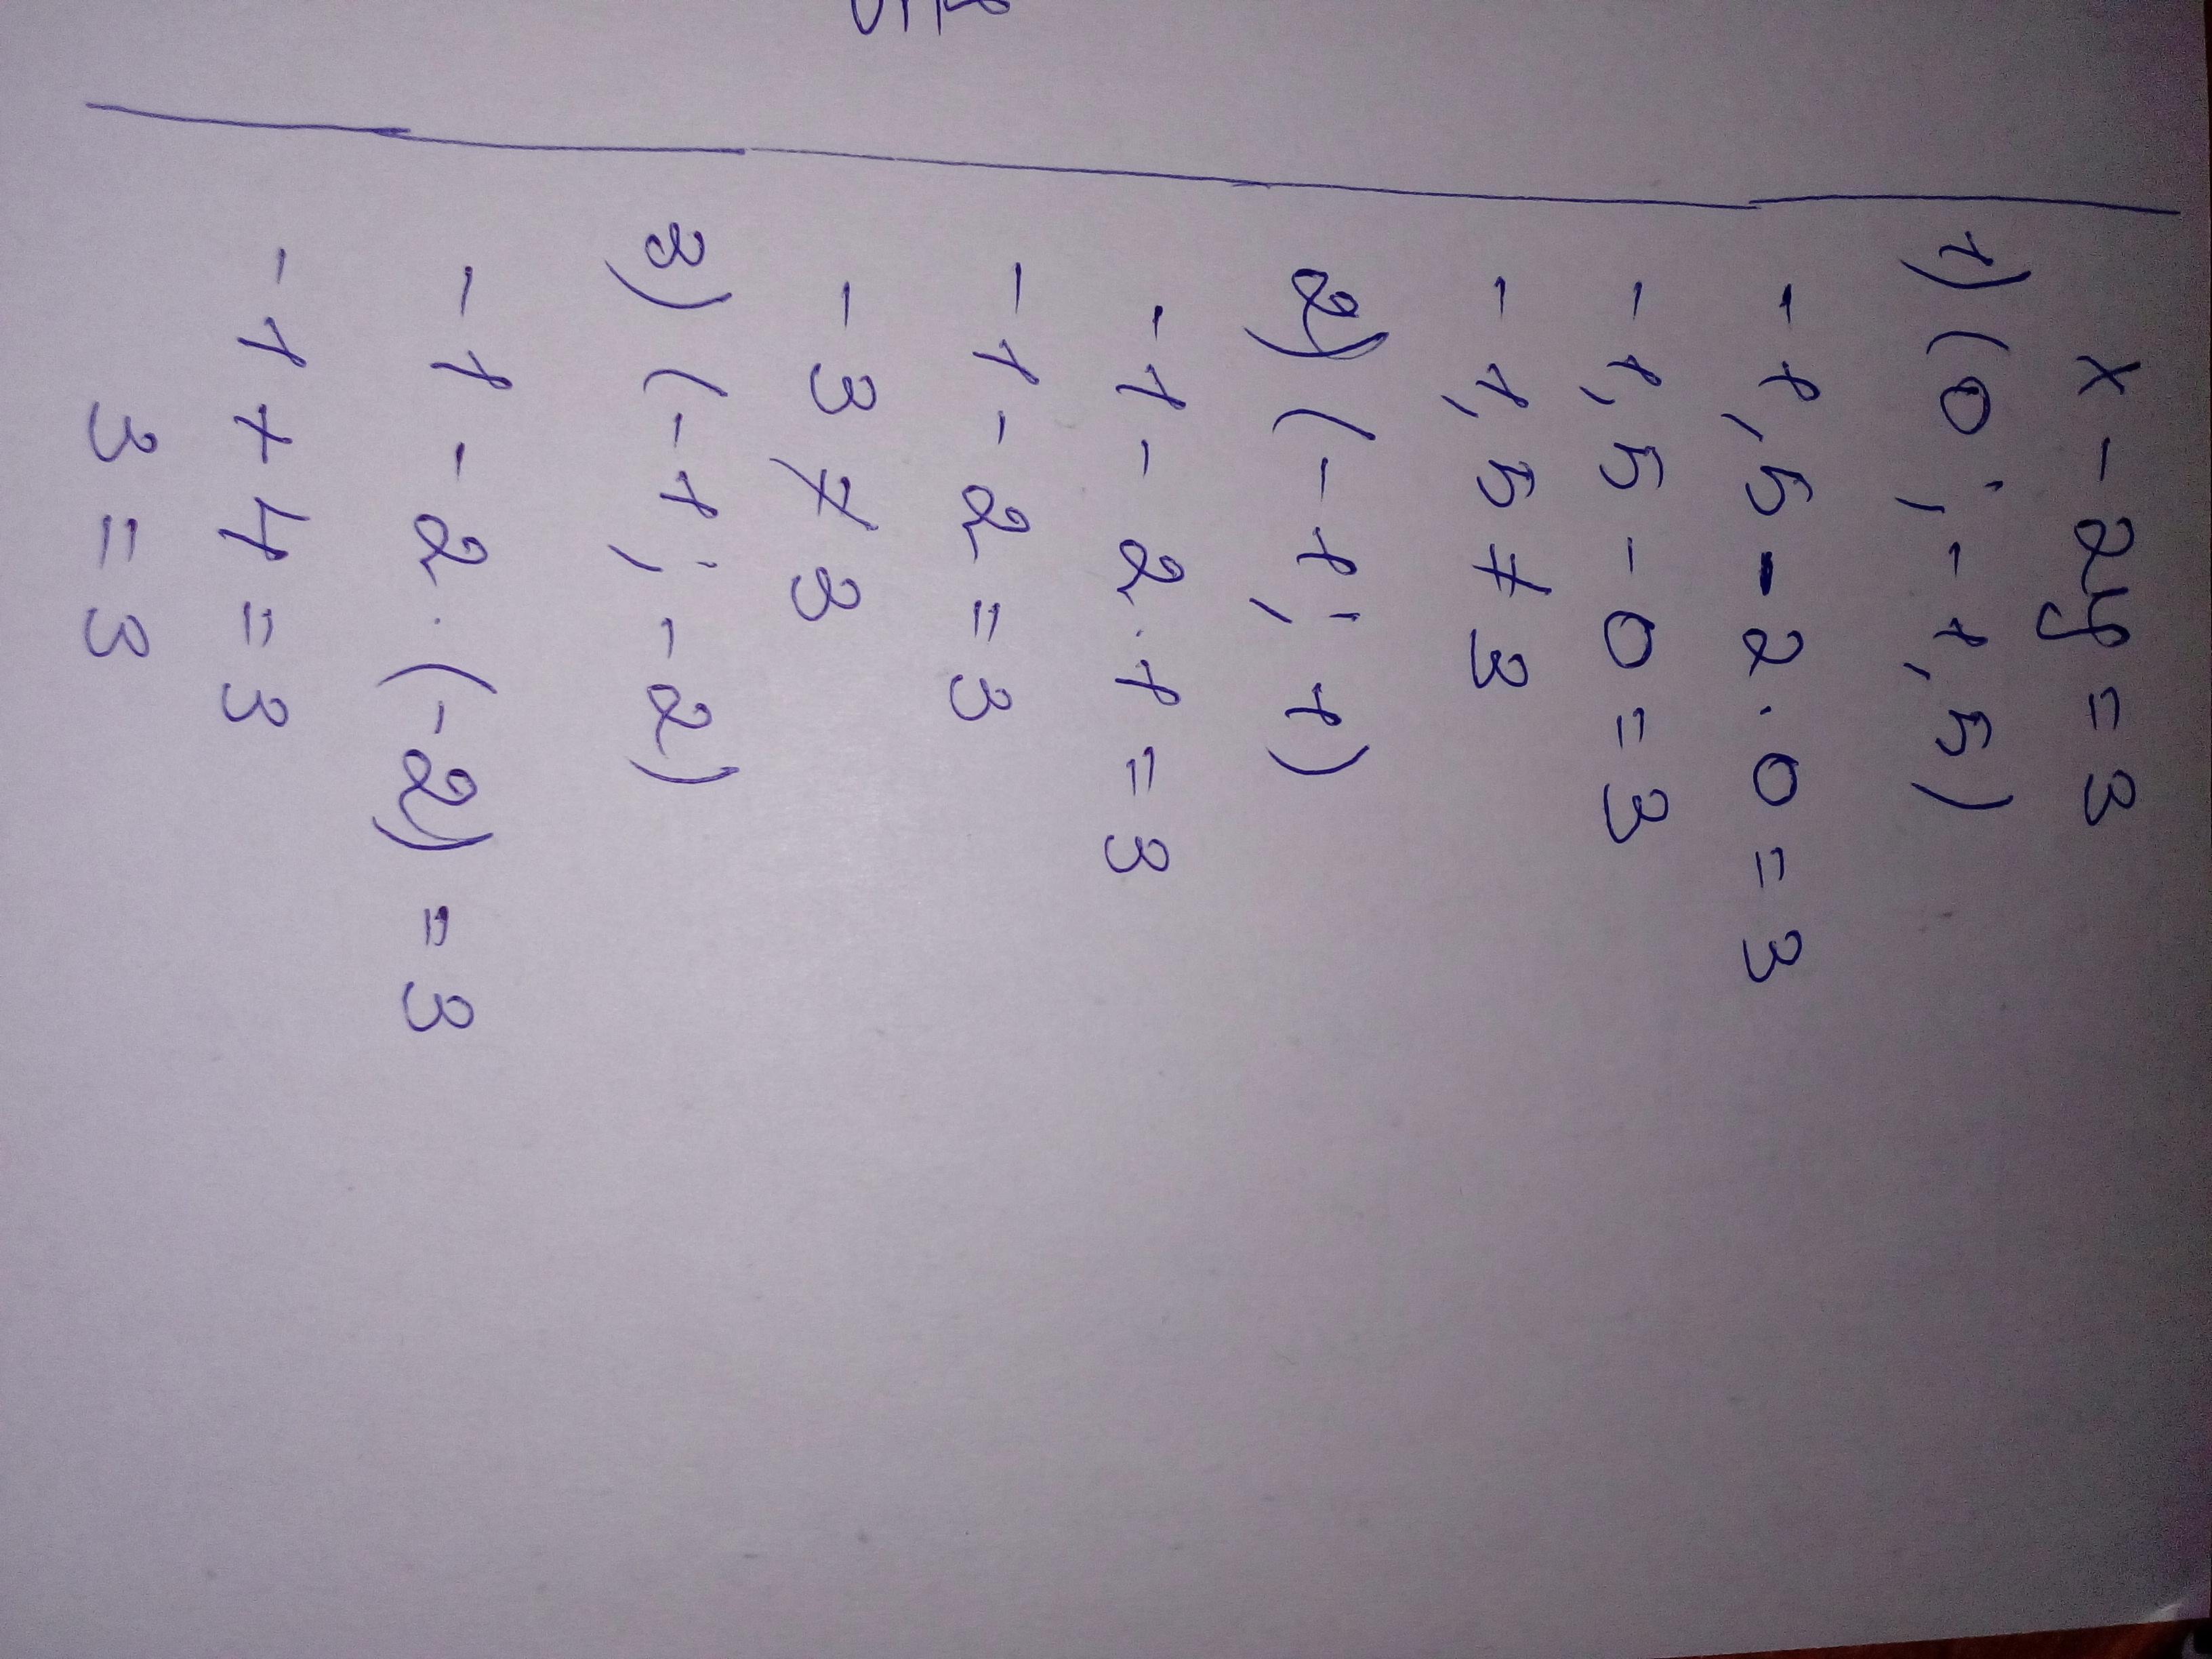 x - 2y = 3
1) (0; -1,5)
-1,5 - 2 · 0 = 3
-1,5 - 0 = 3
-1,5 ≠ 3
2) (-1; 1)
-1 - 2 · 1 = 3
-1 - 2 = 3
-3 ≠ 3
3) (-1; -2)
-1 - 2 · (-2) = 3
-1 + 4 = 3
3 = 3